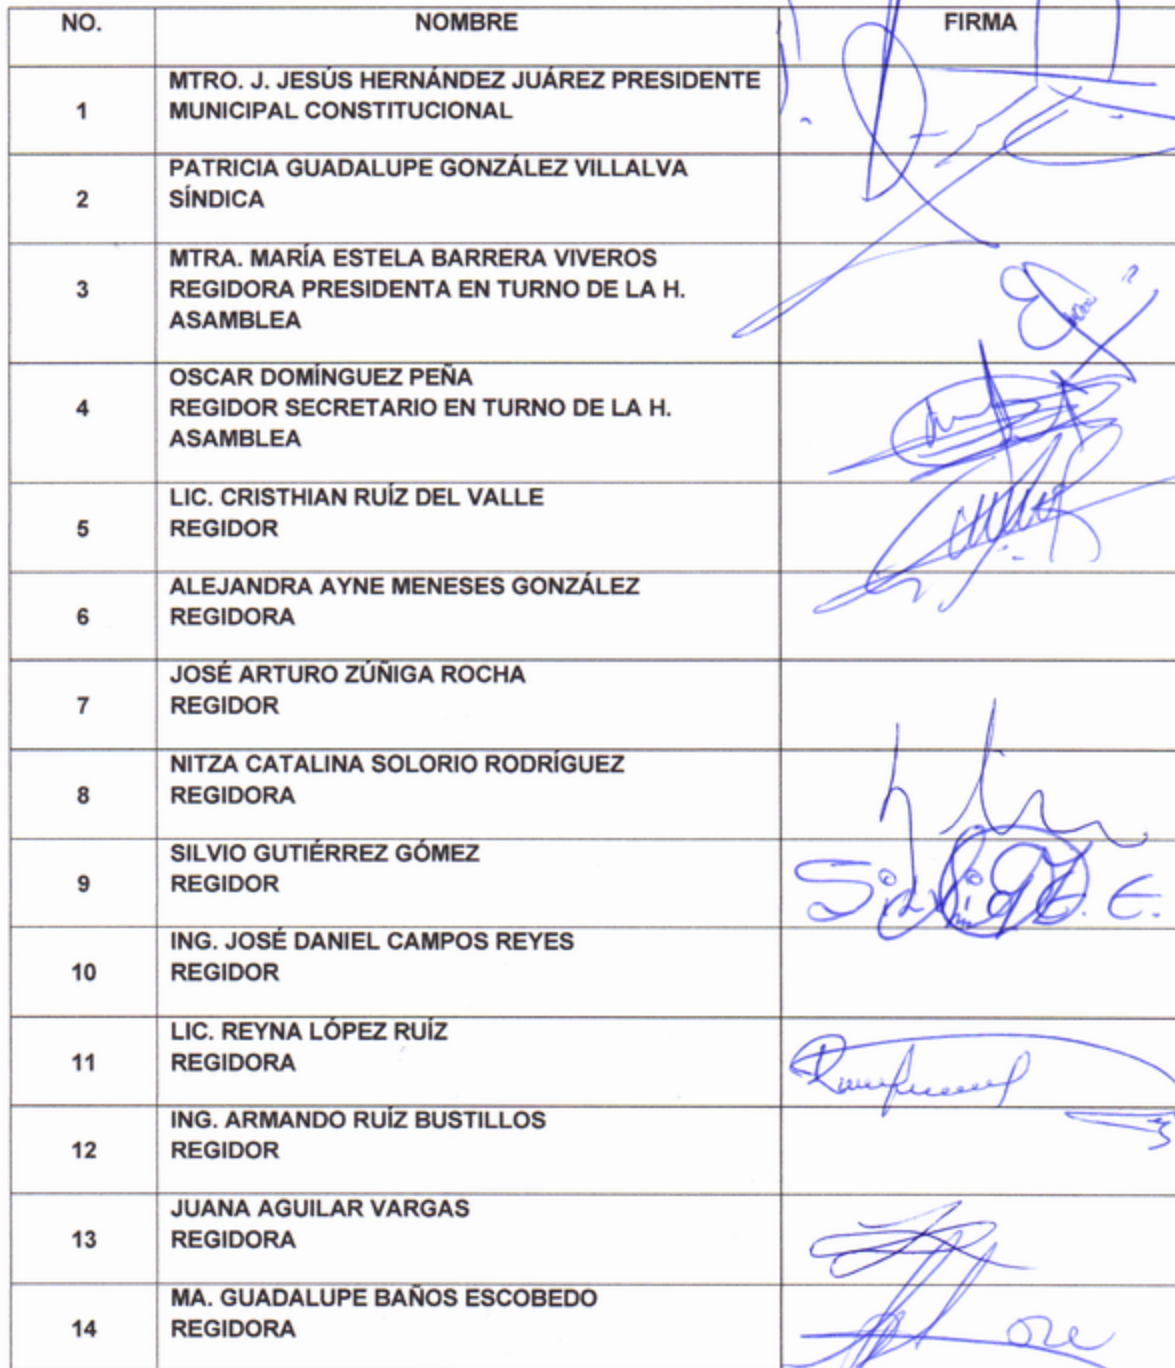 NO. NOMBRE FIRMA
MTRO. J. JESÚS HERNÁNDEZ JUÁREZ PRESIDENTE
1 MUNICIPAL CONSTITUCIONAL
PATRICIA GUADALUPE GONZÁLEZ VILLALVA
2 SÍNDICA
MTRA. MARÍA ESTELA BARRERA VIVEROS
3 REGIDORA PRESIDENTA EN TURNO DE LA H.
ASAMBLEA
OSCAR DOMÍNGUEZ PEÑA
4 REGIDOR SECRETARIO EN TURNO DE LA H.
ASAMBLEA
LIC. CRISTHIAN RUÍZ DEL VALLE
5 REGIDOR
ALEJANDRA AYNE MENESES GONZÁLEZ
6 REGIDORA
JOSÉ ARTURO ZÚÑIGA ROCHA
7 REGIDOR
NITZA CATALINA SOLORIO RODRÍGUEZ
8 REGIDORA
SILVIO GUTIÉRREZ GÓMEZ
9 REGIDOR
ING. JOSÉ DANIEL CAMPOS REYES
10 REGIDOR
LIC. REYNA LÓPEZ RUÍZ
11 REGIDORA
ING. ARMANDO RUÍZ BUSTILLOS
12 REGIDOR
JUANA AGUILAR VARGAS
13 REGIDORA
MA. GUADALUPE BAÑOS ESCOBEDO
14 REGIDORA